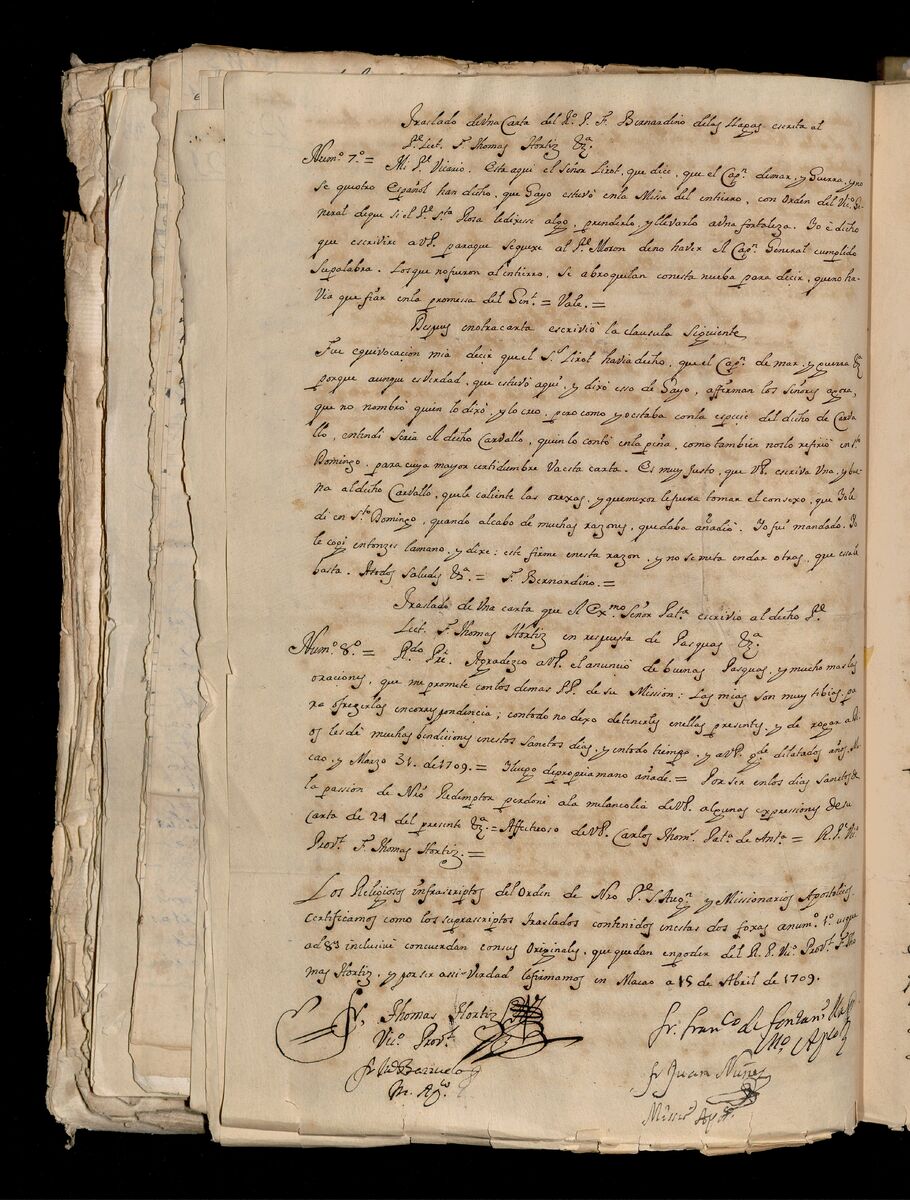 Traslado de Vna Carta del Rº. P. F. Bernardino delas Llagas escrita al
Pᵉ. Lect. F. Thomas Hortiz &ᵃ.
Numº. 7º. = Mi Pᵉ. Vicario. Esta aqui el Señor Lirot, que dice, que el Capⁿ. demar, y Guerra, y no
se quotro Español han dicho, que Gayo estuvò enla Missa del entierro, con Orden del Vicº. Ge-
neral deque si el Pᵉ. Sᵗᵃ Rosa ledixesse algo, prenderlo, y llevarlo aVna fortaleza. Io è dicho
que escrivirè aVP. paraque sequexe al Pᵉ. Moron deno haver el Capⁿ. General cumplido
Supalabra. Losque nofueron al entierro, Se abroquelan conesta nueba para decir, queno ha-
Via que fiar enla promessa del Genˡ. = Vale. =
Despues enotra carta escriviò la clausula Siguiente
Fue equivocacion mia decir que el Sʳ. Lirot havia dicho, que el Capⁿ. de mar, y guerra &ᵃ
porque aunque esVerdad, que estuvò aquì, y dixò esso de Gayo, affirman los Señores agora,
que no nombrò quien lo dixò, y lo creo, pero como yo estaba conla especie del dicho de Carva-
llo, entendi Seria el dicho Carvallo, quien lo contò enla peña, como tambien noslo refiriò en Sᵗᵒ
Domingo, para cuya mayor certidumbre Vaesta carta. Es muy Justo, que VP. escriva Vna, y bue-
na al dicho Carvallo, quele caliente las orexas, y quemexor lefuera tomar el consexo, que Iole
di en Sᵗᵒ Domingo, quando alcabo de muchas razones, quedaba añadiò. Io fui mandado. Io
le cogi entonzes lamano, y dixe: este firme enesta razon, y no semeta endar otras, que essa le
basta. Atodos Saludes &ᵃ. = F. Bernardino. =
Traslado de Vna carta que el Exᵐᵒ. Señor Patᵃ. escriviò al dicho Pᵉ.
Lect. F. Thomas Hortiz en respuesta de Pasquas &ᵃ
Numº. 8º. = Rᵈᵒ. Pᵉ. Agradezco aVP. el anuncio de buenas Pasquas, y mucho mas las
oraciones, que me promete conlos demas PP. de su Mission: Las mias son muy tibias pa-
ra ofrezerlas encorrespondencia; contodo no dexo detenerles enellas presentes, y de rogar a Di-
os lesdè muchas bendiciones enestos Sanctos dias, y entodo tiempo, y aVP. gᵈᵉ dilatados años, Ma-
cao, y Marzo 31. de 1709. = Iluego depropria mano añade. = Por ser enlos dias Sanctos de
la passion de Nrõ Redemptor perdonè ala melancolia de VP. algunas expressiones desu
Carta de 24 del presente &ᵃ. = Affectuoso de VP. Carlos Thomˢ. Patᵃ. de Antᵃ = R. P. Vº
Provˡ. F. Thomas Hortiz. =
Los Religiosos infrascriptos del Orden de Nrõ Pᵉ. S. Augⁿ. y Missionarios Apostolicos
Certificamos como los suprascriptos traslados contenidos enestas dos foxas anumº. 1º. usque
ad 83 inclusivè concuerdan consus Originales, que quedan enpoder del R. P. Vicº. Provˡ. F. Tho-
mas Hortiz, y por ser assi Verdad lofirmamos en Macao a 15 de Abril de 1709.
Fr. Thomas Hortiz
Vicº. Provˡ.
fr. Francº de fontanˢ
Mº. Apºˢᵗ
fr Juº Barruelo
M. Apᶜᵒ
fr Juan Nuñez
Missⁿº Apº.